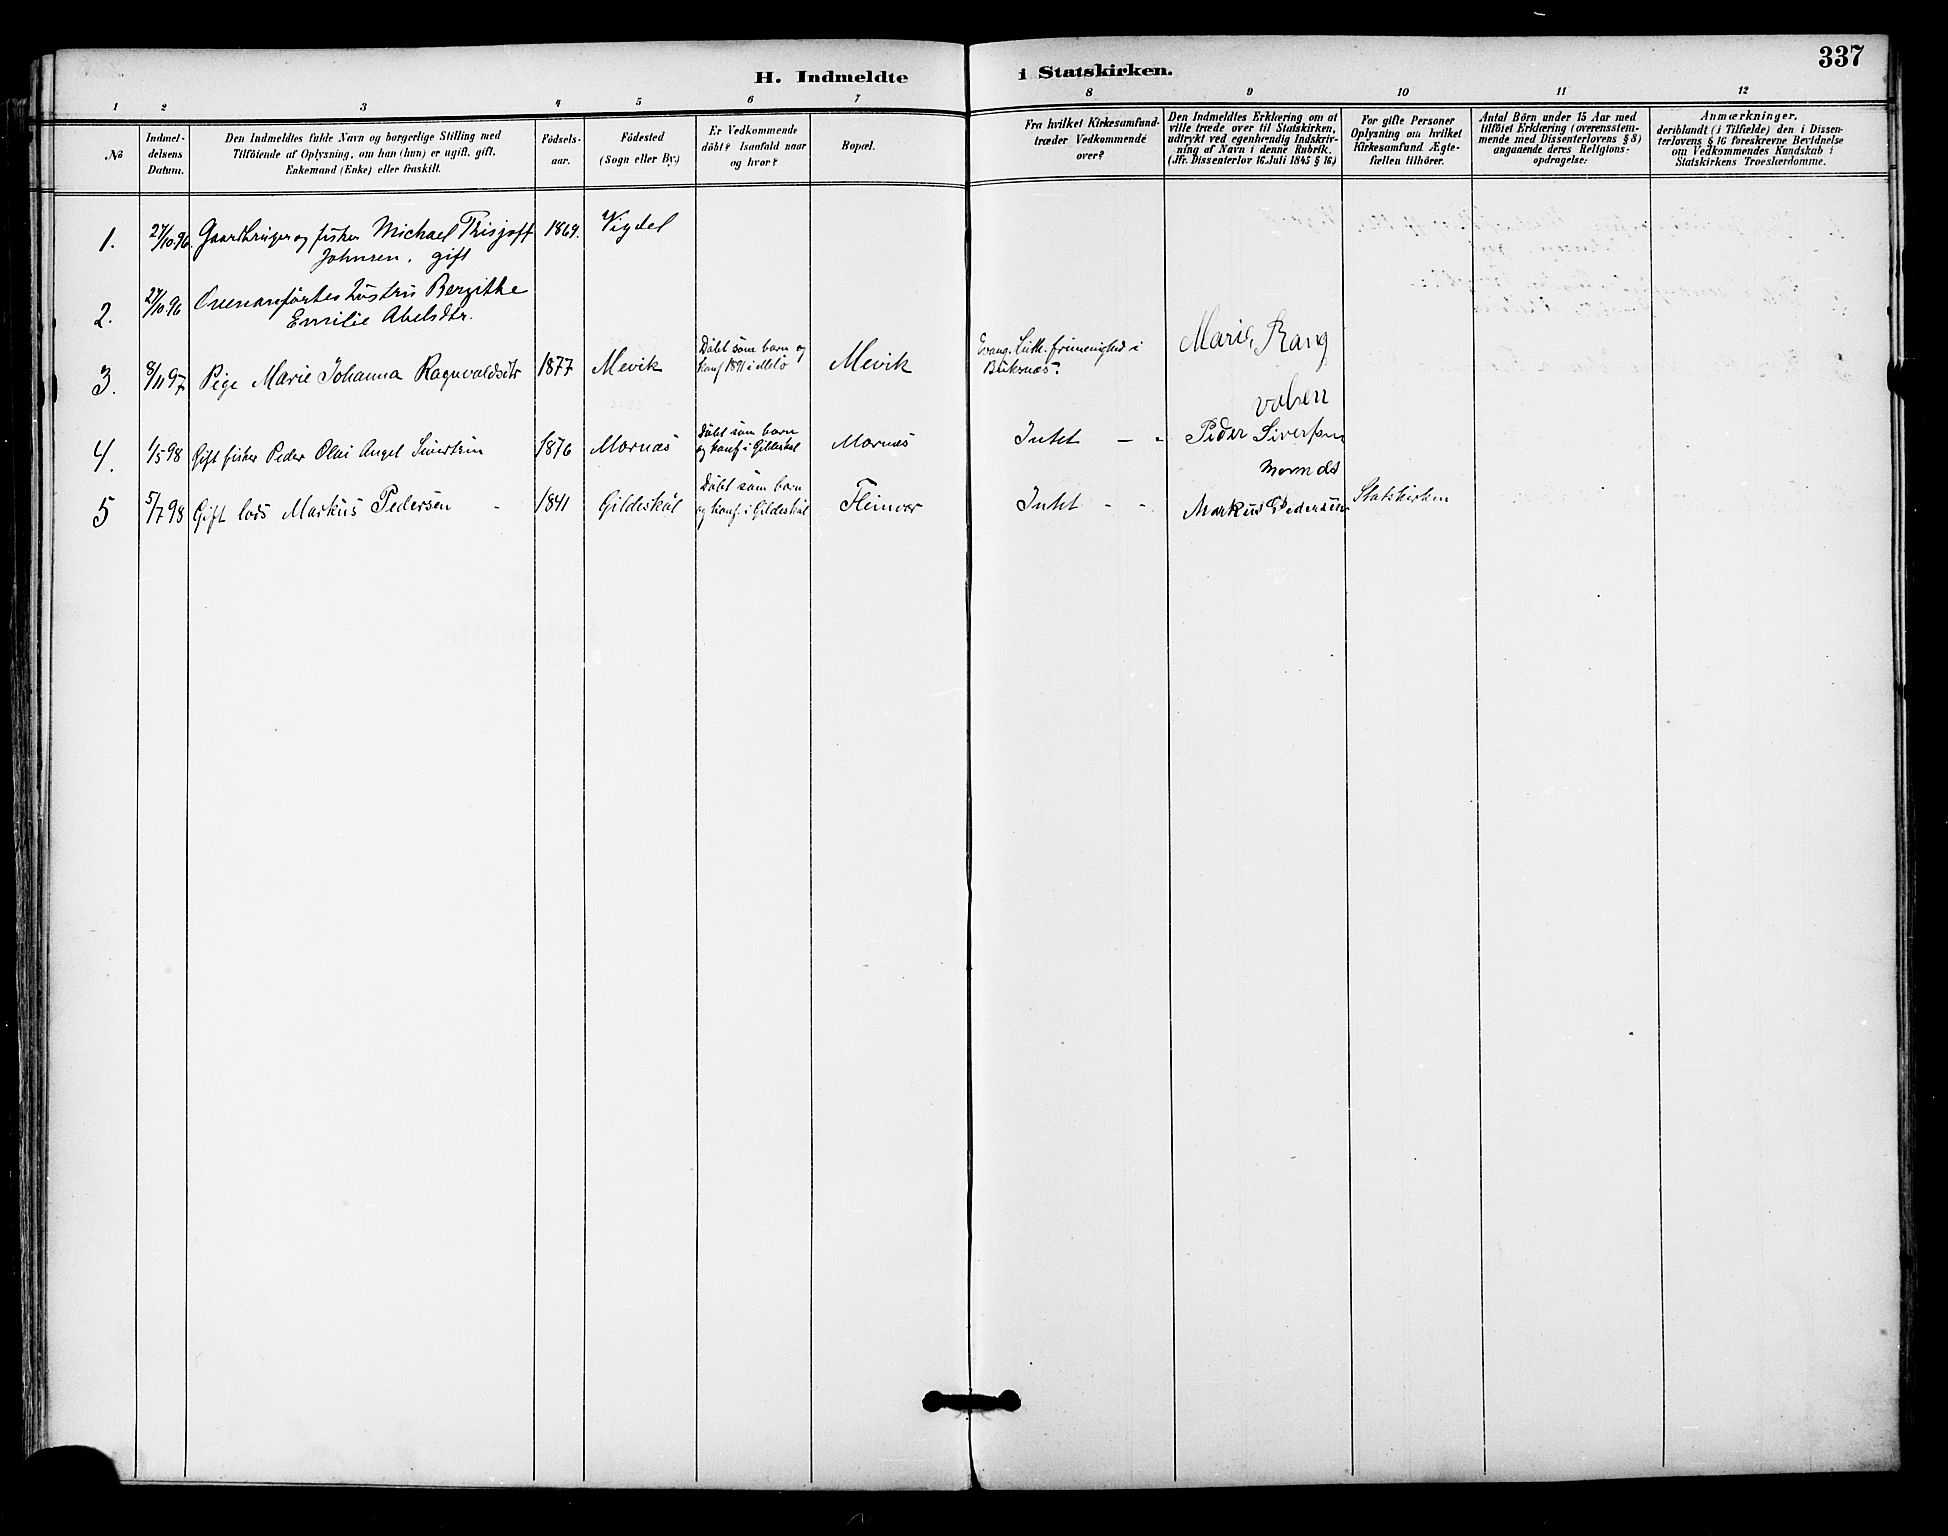 337
H. Indmeldte i Statskirken.
1 2 3 4 5 6 7 8 9 10 11 12
No
Indmel-
delsens
Datum.
Den Indmeldtes fulde Navn og borgerlige Stilling med
Tilföiende af Oplysning, om han (hun) er ugift, gift,
Enkemand (Enke) eller fraskilt.
Födsels-
aar.
Födested
(Sogn eller By.)
Er Vedkommende
döbt? Isaafald naar
og hvor?
Bopæl.
Fra hvilket Kirkesamfund
træder Vedkommende
over?
Den Indmeldtes Erklæring om at
ville træde over til Statskirken,
udtrykt ved egenhændig Indskriv-
ning af Navn i denne Rubrik.
(Jfr. Dissenterlov 16 Juli 1845 § 16.)
For gifte Personer
Oplysning om hvilket
Kirkesamfund Ægte-
fællen tilhörer.
Antal Börn under 15 Aar med
tilföiet Erklæring (overensstem-
mende med Dissenterlovens § 8)
angaaende deres Religions-
opdragelse:
Anmærkninger,
deriblandt (i Tilfælde) den i Dissen-
terlovens § 16 foreskrevne Bevidnelse
om Vedkommendes Kundskab i
Statskirkens Troeslærdomme.
1. 27/10 96. Gaardbruger og fisker Michael Thisjoff 1869. Vigdel
Johnsen, gift
2. 27/10 96 Ovenanførtes hustru Bergithe
Emilie Abelsdtr.
3. 8/11 97 Pige Marie Johanna Ragnvaldsdtr 1877 Mevik Døbt som barn og
konf 1891 i Melö Mevik Evang. Luth. frimenighed i
Buksnæs. Marie, Rang
valsen
4. 1/5 98 Gift fisker Peder Olai Angel Sivertsen 1876 Mornæs Døbt som barn
og konf i Gildeskal Mornæs Intet - - Peder Siversen
Mornæs
5 5/7 98 Gift lods Markus Pedersen - 1841 Gildeskål Døbt som barn
og konf. i Gildeskål Fleinvær Intet - - Markus Pedersen Statskirken